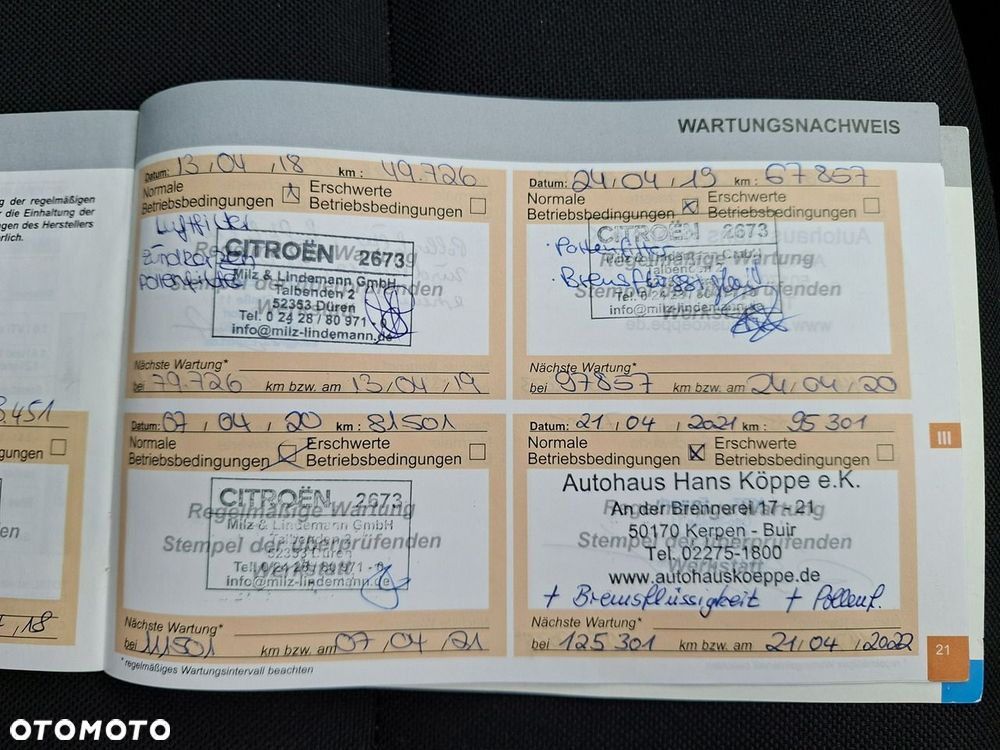 WARTUNGSNACHWEIS
g der regelmäßigen
r die Einhaltung der
gen des Herstellers
rlich.
Datum: 13 / 04 / 18 km: 49.726
Normale
Betriebsbedingungen
Erschwerte
Betriebsbedingungen
Luftfilter
Zündkerzen
Pollenfilter
Regelmäßige Wartung
Stempel der überprüfenden
Werkstatt
CITROËN 2673
Milz & Lindemann GmbH
Talbenden 2
52353 Düren
Tel. 0 24 28 / 80 971 -
info@milz-lindemann.de
Nächste Wartung*
bei 79.726 km bzw. am 13 / 04 / 19
Datum: 24 / 04 / 19 km: 67857
Normale
Betriebsbedingungen
Erschwerte
Betriebsbedingungen
· Pollenfilter
· Bremsflüssigkeit
Regelmäßige Wartung
Stempel der überprüfenden
Werkstatt
CITROËN 2673
info@milz-lindemann.de
Nächste Wartung*
bei 97857 km bzw. am 24 / 04 / 20
3.451
gungen
en
, 18
Datum: 07 / 04 / 20 km: 81501
Normale
Betriebsbedingungen
Erschwerte
Betriebsbedingungen
Regelmäßige Wartung
Stempel der überprüfenden
Werkstatt
CITROËN 2673
Milz & Lindemann GmbH
Talbenden 2
52353 Düren
Tel. 0 24 28 / 80 971 -
info@milz-lindemann.de
Nächste Wartung*
bei 111501 km bzw. am 07 / 04 / 21
Datum: 21 / 04 / 2021 km: 95 301
Normale
Betriebsbedingungen
Erschwerte
Betriebsbedingungen
Autohaus Hans Köppe e.K.
An der Brennerei 17 - 21
50170 Kerpen - Buir
Tel. 02275-1800
www.autohauskoeppe.de
+ Bremsflüssigkeit + Pollenf.
Nächste Wartung*
bei 125 301 km bzw. am 21 / 04 / 2022
III
21
* regelmäßiges Wartungsintervall beachten
OTOMOTO